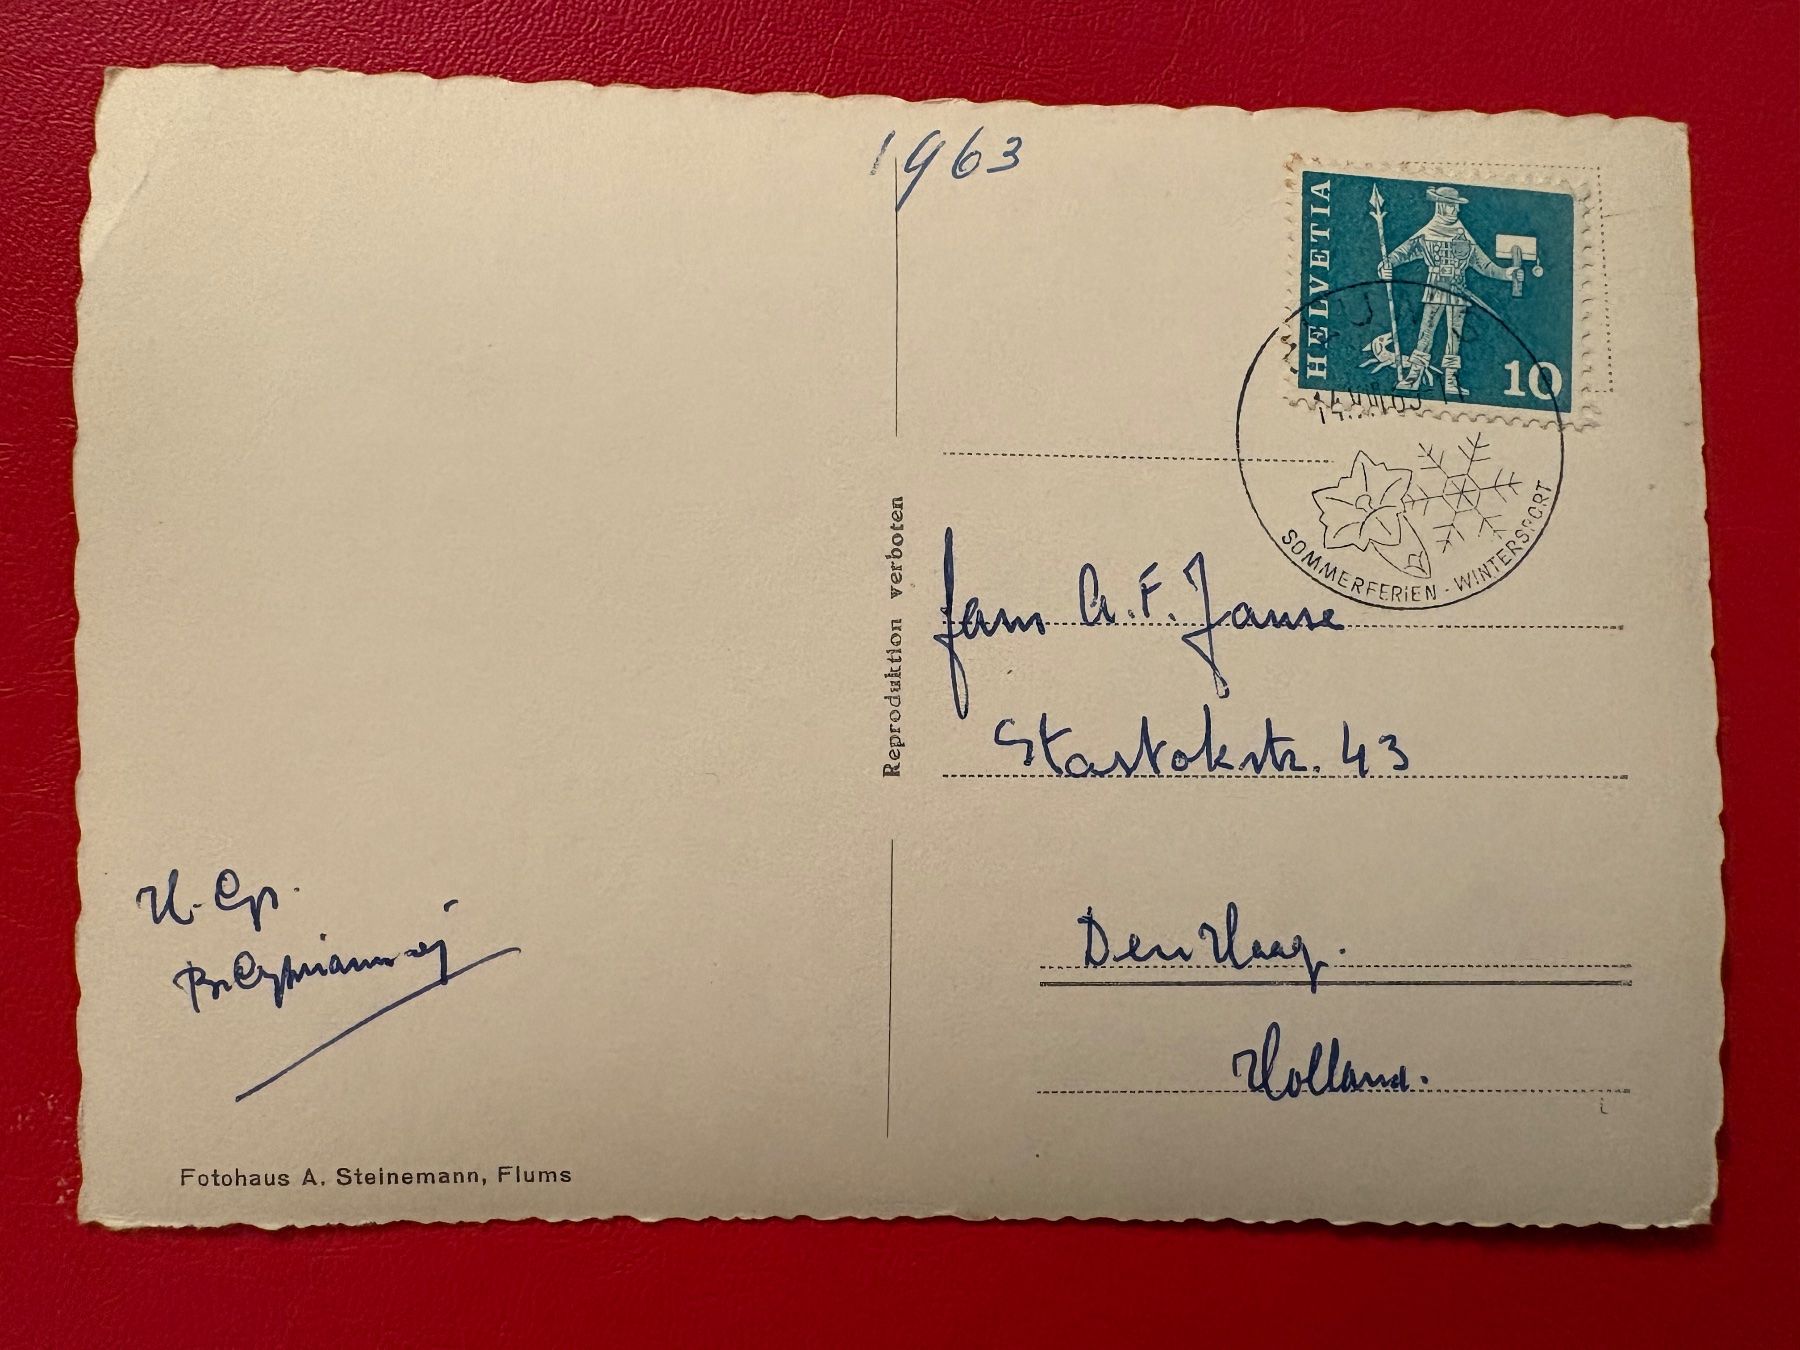 1963
HELVETIA
10
SOMMERFERIEN - WINTERSPORT
Reproduktion verboten
Fam A.F. Janse
Stastokstr. 43
Den Haag.
Holland.
H. Gr.
Fotohaus A. Steinemann, Flums